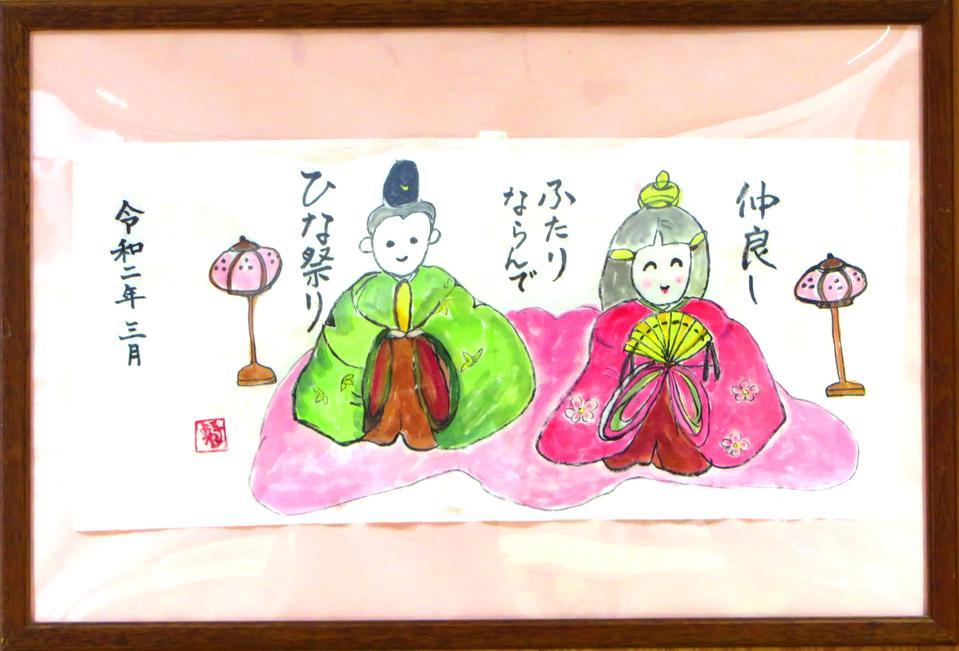 仲良し
ふたり
ならんで
ひな祭り
令和二年 三月